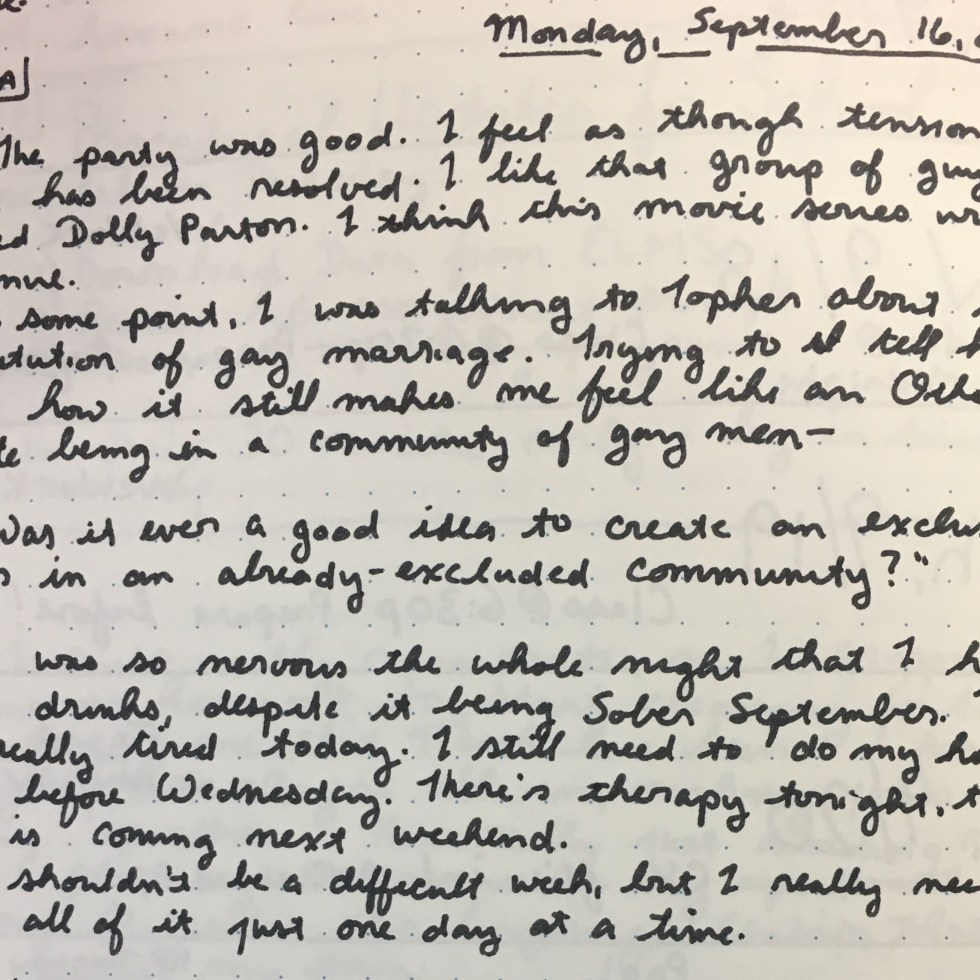 Monday, September 16,
A
The party was good. I feel as though tension
has been resolved. I like that group of guy
ed Dolly Parton. I think this movie series w
nue.
some point, I was talking to Topher about
itution of gay marriage. Trying to tell h
how it still makes me feel like an Othe
te being in a community of gay men-
Was it ever a good idea to create an exclus
s in an already-excluded community?"
was so nervous the whole night that I h
drinks, despite it being Sober September.
really tired today. I still need to do my ho
before Wednesday. There's therapy tonight, t
is coming next weekend.
shouldn't be a difficult week, but I really nee
all of it just one day at a time.